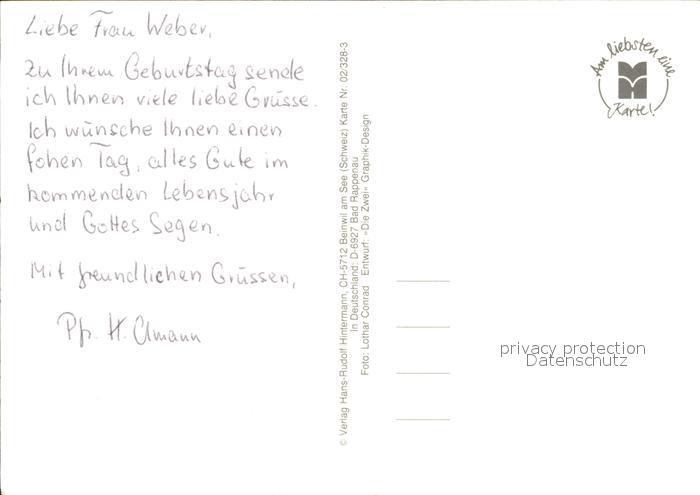 Liebe Frau Weber,
Zu Ihrem Geburtstag sende
ich Ihnen viele liebe Grüsse.
Ich wünsche Ihnen einen
fohen Tag, alles Gute im
kommenden Lebensjahr
und Gottes Segen.
Mit freundlichen Grüssen,
Pfr. H.
© Verlag Hans-Rudolf Hintermann, CH-5712 Beinwil am See (Schweiz) Karte Nr. 02/328-3
In Deutschland: D-6927 Bad Rappenau
Foto: Lothar Conrad Entwurf: »Die Zwei« Graphik-Design
Am liebsten eine
Karte!
privacy protection
Datenschutz